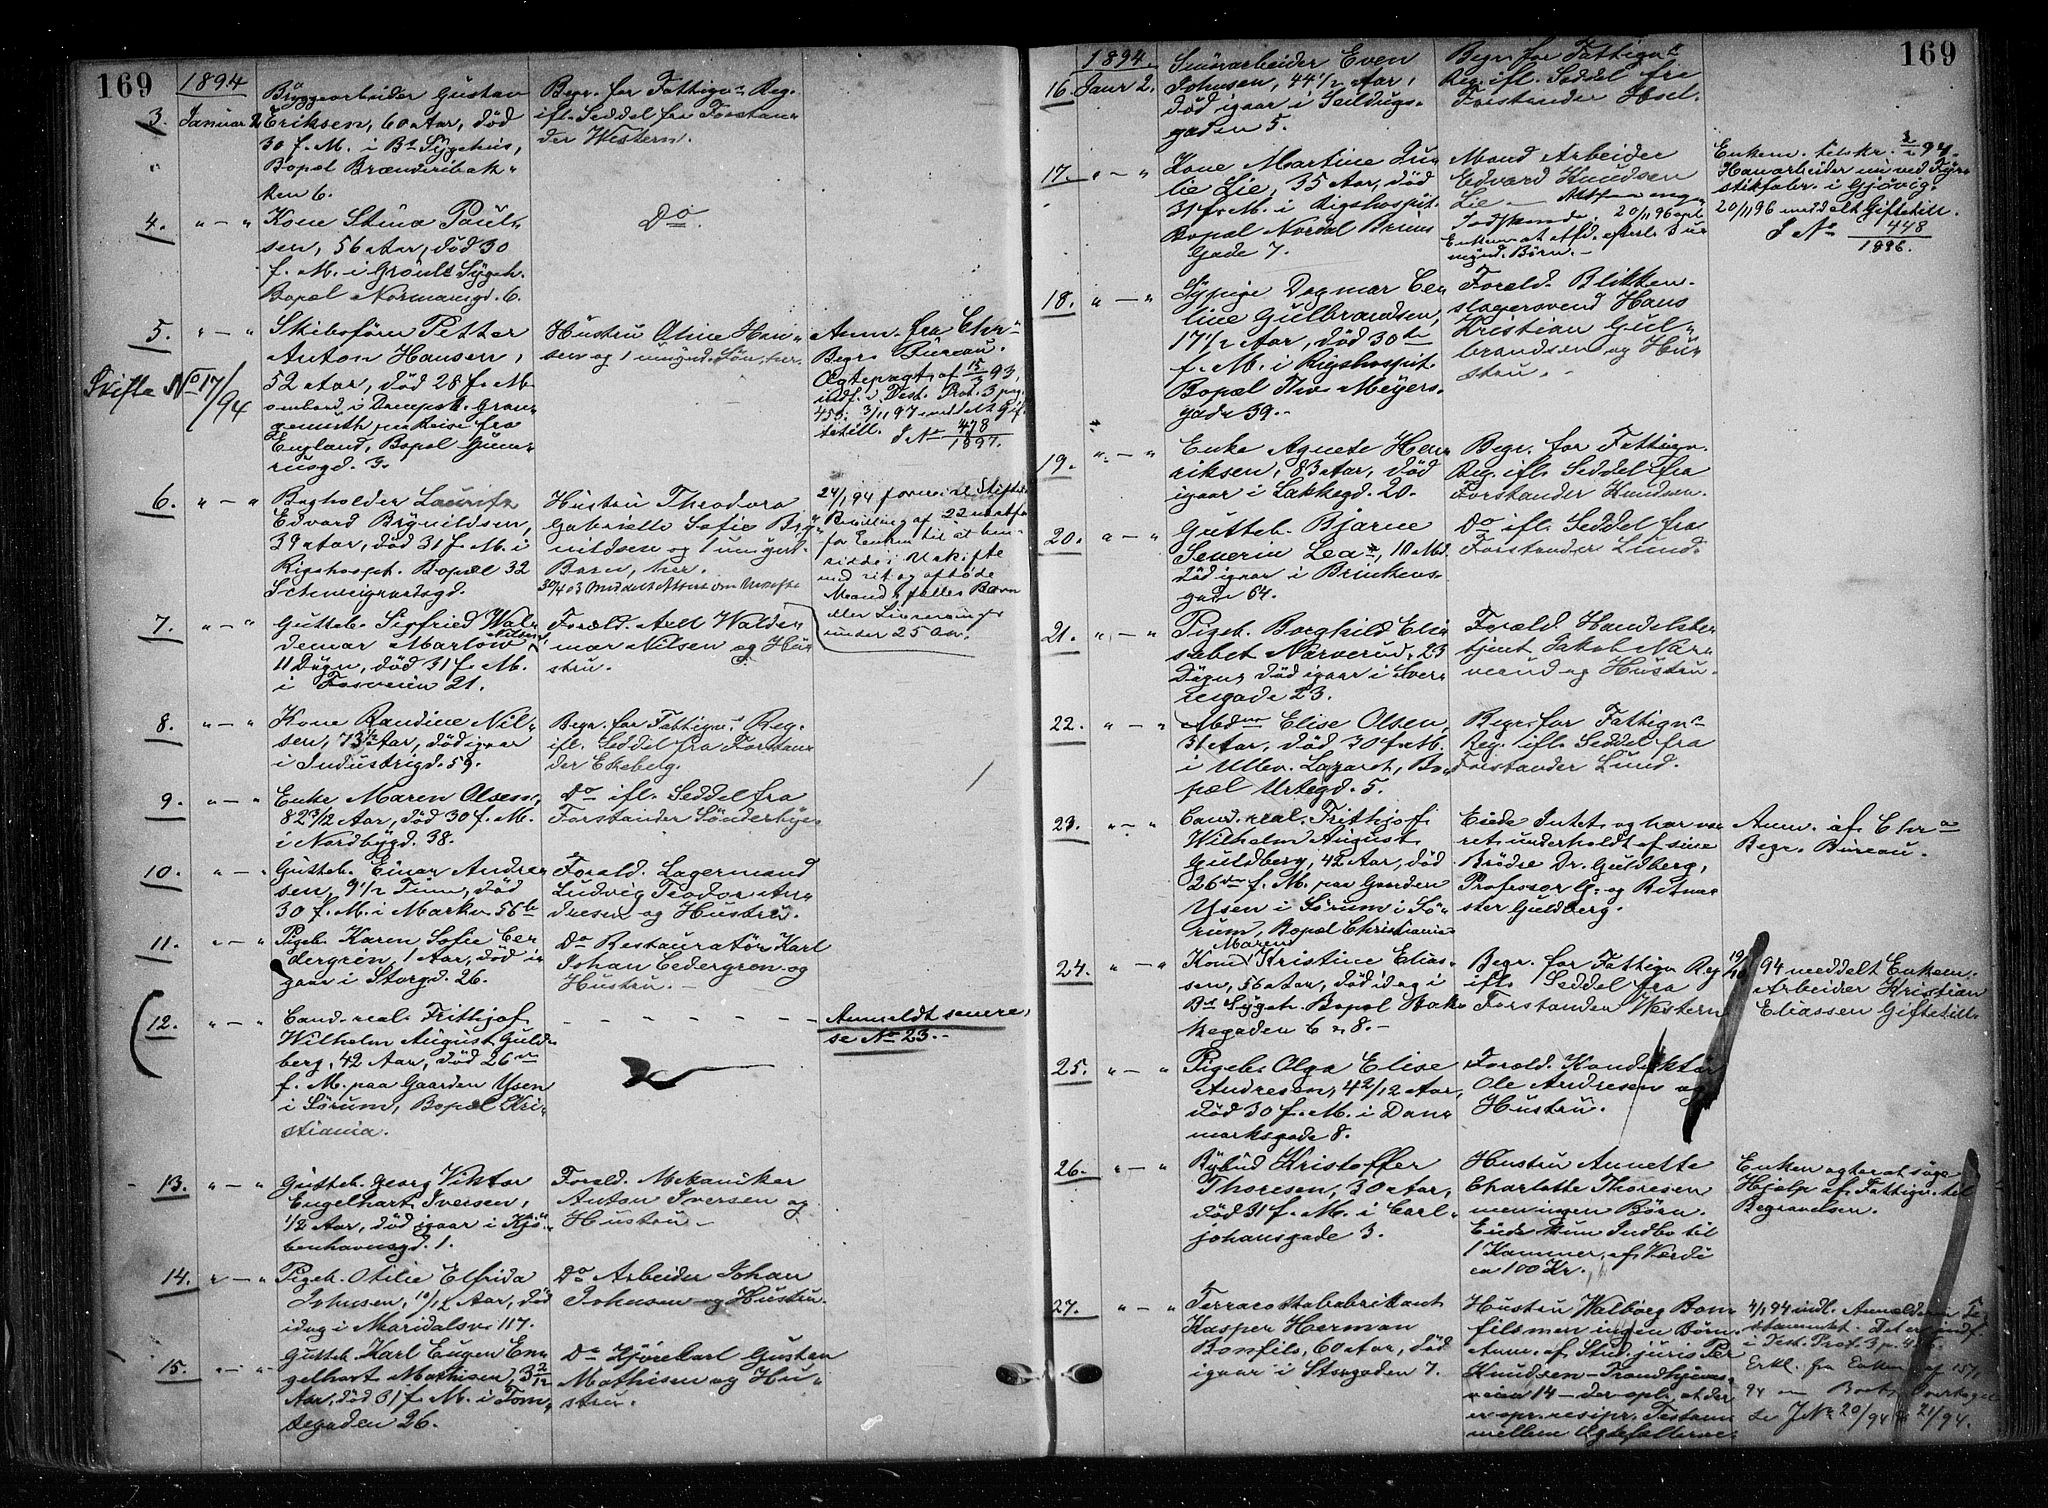 169
1894
3. Januar 2 Bryggearbeider Gustav
Eriksen, 60 Aar, död
30 f. M. i Bs Sygehus,
Bopæl Brænderibak-
ken 6.
Begr. for Fattigv. Reg.
ifl. Seddel fra Forstan-
der Western.
4. " — " Kone Stina Paul-
sen, 56 Aar, död 30
f. M. i Grönl. Sygeh.
Bopæl Normansgd. 6.
Do
5. " — " Skibsförer Petter
Anton Hansen,
52 Aar, död 28 f. M.
ombord i Dampsk. Gran-
gemouth paa Reise fra
England, Bopæl Gum-
rusgd. 3.
Skifte No 17/94
Hustru Oline Han-
sen og 1 umynd. Sön, her
Anm. fra Chr.
Begr. Bureau.
Ægtepagt af 15/3 93,
indf. i Test. Prot. 3 pag.
453. 3/11 97 meddelt Gif-
tetill. J No 478/1897.
6. " — " Bogholder Lauritz
Edvard Brynildsen,
39 Aar, död 31 f. M. i
Rigshospit. Bopæl 32
Schweigaardsgd.
Hustru Theodora
Gabrielle Sofie Bry-
nildsen og 1 umynd.
Barn, her.
30/4 03 meddelt Attest om Uskifte
24/1 94 forev. Skifte
Bevilling af 22
for Enken til at hen-
sidde i Uskifte
med sit og afdöde
Mands fælles Barn
eller Livsarvinger
under 25 Aar.
7. " — " Gutteb. Sigfried Wal-
demar Marlow Nilsen
11 Dögn, död 31 f. M.
i Fosveien 21.
Foræld. Axel Walde-
mar Nilsen og Hu-
stru.
8. " — " Kone Randine Nil-
sen, 73 1/2 Aar, död igaar
i Industrigd. 59.
Begr. for Fattigv. Reg.
ifl. Seddel fra Forstan-
der Ekeberg.
9. " — " Enke Maren Olsen,
82 3/12 Aar, död 30 f. M.
i Nordbygd. 38.
Do ifl. Seddel fra
Forstander Sönderbye
10. " — " Gutteb. Einar Andre-
sen, 9 1/2 Time, död
30 f. M. i Markv. 56 b
Foræld. Lagermand
Ludvig Teodor An-
dresen og Hustru.
11. " — " Pigeb. Karen Sofie Ce-
dergren, 1 Aar, död i-
gaar i Storgd. 26.
Do Restauratör Karl
Johan Cedergren og
Hustru. —
12. " — " Cand. real. Frithjof
Wilhelm August Guld-
berg, 42 Aar, död 26de
f. M. paa Gaarden Ysen
i Sörum, Bopæl Kri-
stiania.
— — — — — — —
Anmeldt senere,
se No 23. —
13. " — " Gutteb. Georg Viktor
Engelhart Iversen,
1/2 Aar, död igaar i Kjö-
benhavnsgd. 1.
Foræld. Mekaniker
Anton Iversen og
Hustru —
14. " — " Pigeb. Otilie Elfrida
Johnsen, 10/12 Aar, död
idag i Maridalsv. 117.
Do Arbeider Johan
Johnsen og Hustru.
15. " — " Gutteb. Karl Eugen En-
gelhart Mathisen, 3 2/12
Aar, död 31 f. M. i Tom-
tegaden 26.
Do Kjörekarl Gustav
Mathisen og Hu-
stru.
169
1894.
16 Janr 2. Snearbeider Even
Johnsen, 44 1/2 Aar,
död igaar i Seildugs-
gaden 5.
Begr. for Fattigv.
Reg. ifl. Seddel fra
Forstander Hoel.
17. " — " Kone Martine Ju-
lie Lie, 35 Aar, död
31 f. M. i Rigshospit.
Bopæl Nordal Bruns
Gade 7.
Mand Arbeider
Edvard Knudsen
Lie —
20/11 96 opl.
Enkem. at Afd. efterl. 3 u-
mynd. Börn. —
Enkem. tilskr. 94.
Han arbeider nu ved Fyr-
stikfabr. i Gjövig.
20/11 96 meddelt Giftetill.
J No 448/1896.
18. " — " Sypige Dagmar Ce-
line Gulbrandsen,
17 1/2 Aar, död 30te
f. M. i Rigshospit.
Bopæl Thv. Meyers-
gade 39. —
Foræld. Blikken-
slagersvend Hans
Kristian Gul-
brandsen og Hu-
stru. —
19. " — " Enke Agnete Hen-
riksen, 83 Aar, död
igaar i Lakkegd. 20.
Begr. for Fattigv.
Reg. ifl. Seddel fra
Forstander Knudsen.
20. " — " Gutteb. Bjarne
Severin Lea, 10 Md.
död igaar i Brinkens-
gade 64.
Do ifl. Seddel fra
Forstander Lund.
21. " — " Pigeb. Borghild Eli-
sabet Narverud, 23
Dögn, död igaar i Sver-
resgade 23.
Foræld. Handelsbe-
tjent Jakob Nar-
verud og Hustru.
22. " — " Elise Olsen,
31 Aar, död 30 f. M.
i Ullev. Lazaret, Bo-
pæl Urtegd. 5.
Begr. for Fattigv.
Reg. ifl. Seddel fra
Forstander Lund.
23. " — " Cand. real. Frithjof
Wilhelm August
Guldberg, 42 Aar, död
26de f. M. paa Gaarden
Ysen i Sörum i Sö-
rum, Bopæl Christiania
Eiede Intet og har væ-
ret underholdt af sine
Brödre Dr. Guldberg,
Professor G. og Ritme-
ster Guldberg.
Anm. af Chra
Begr. Bureau.
24. " — " Kone Maren Kristine Elias-
sen, 56 Aar, död idag i
Bs Sygeh. Bopæl Bak-
kegaden 6 & 8. —
Begr. for Fattigv. Reg
ifl. Seddel fra
Forstander Western
19/10 94 meddelt Enkem.
Arbeider Kristian
Eliassen Giftetill.
25. " — " Pigeb. Olga Elise
Andresen, 4 2/12 Aar,
död 30 f. M. i Dan-
marksgade 8.
Foræld. Konduktör
Ole Andresen og
Hustru.
26. " — " Bybud Kristoffer
Thoresen, 30 Aar,
död 31 f. M. i Carl-
johansgade 3.
Hustru Annette
Charlotte Thoresen
men ingen Börn.
Eiede kun Indbo til
1 Kammer, af Værdi
ca 100 Kr.
Enken agter at söge
Hjælp af Fattigv. til
Begravelsen.
27. " — " Terracottafabrikant
Kasper Herman
Bonfils, 60 Aar, död
igaar i Storgaden 7.
Hustru Walborg Bon-
fils men ingen Börn.
Anm. af Stud. juris Per
Knudsen — Trondhjems-
veien 14 — der opl. at der
er opr. resipr. Testam.
mellem Ægtefællerne
4/1 94 indl. Anmelderen Te-
stamentet. Det er indf.
i Test. Prot. 3 p.
Erkl. fra Enken af 15/1
94 om Boets Overtagel-
se J No 20/94 & 21/94.